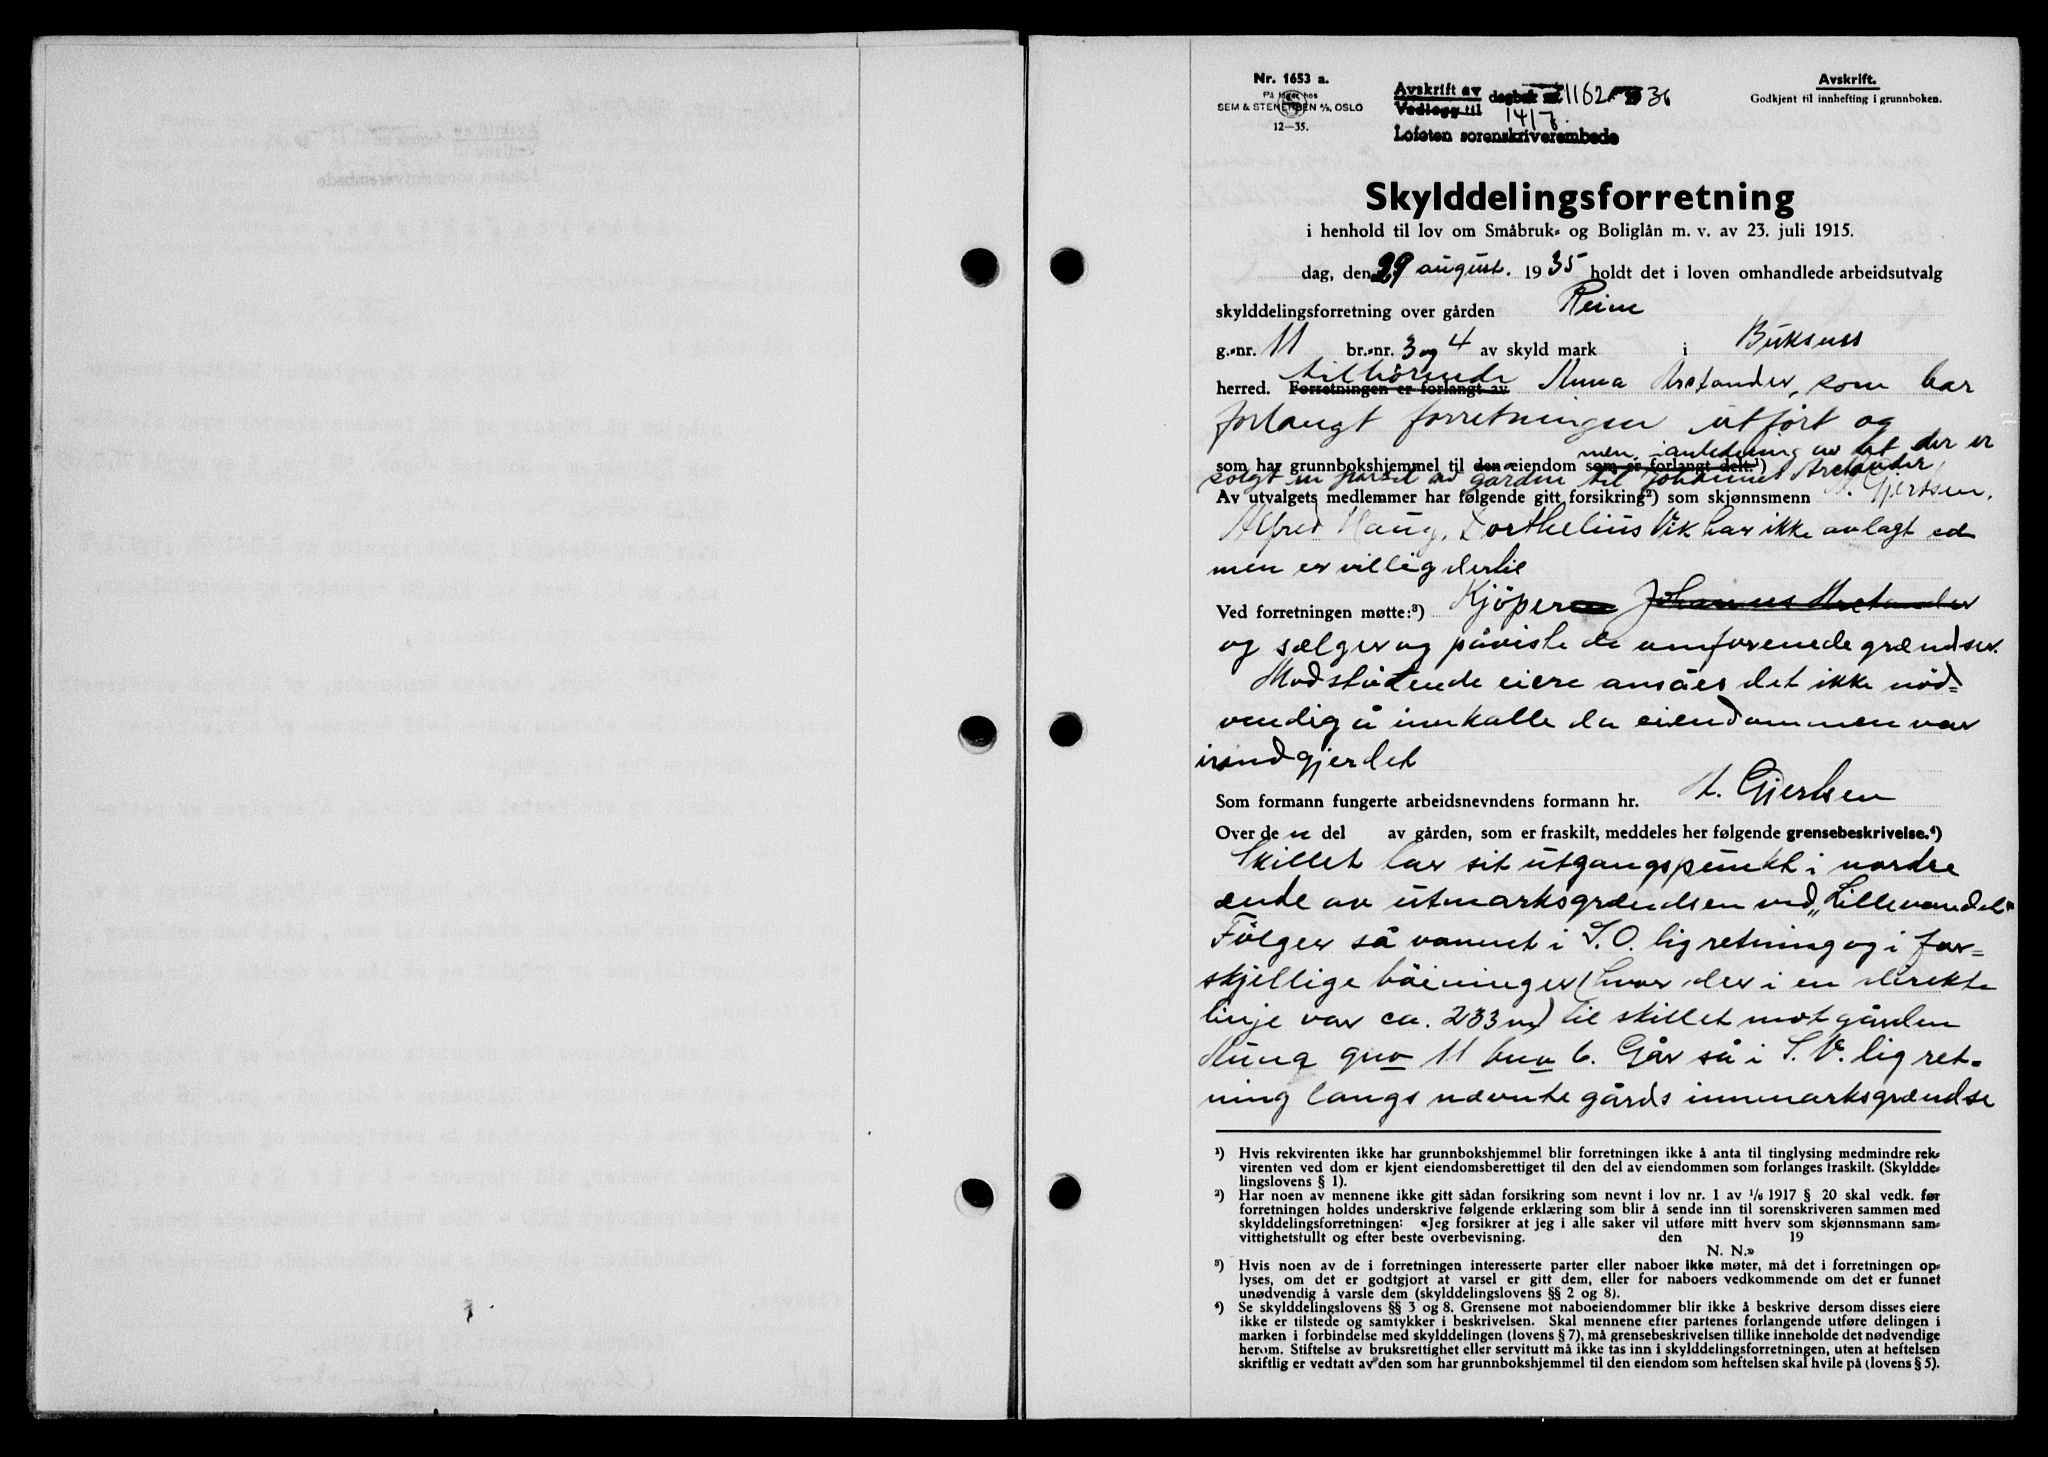 Nr. 1653 a.
På lager hos
SEM & STENERSEN A/S, OSLO
12—35.
Avskrift av
Vedlegg til
dagbok nr. 1162 1936
14/7
Lofoten sorenskriverembede
Avskrift.
Godkjent til innhefting i grunnboken.
Skylddelingsforretning
i henhold til lov om Småbruk- og Boliglån m. v. av 23. juli 1915.
dag, den 29 august. 1935 holdt det i loven omhandlede arbeidsutvalg
skylddelingsforretning over gården Reine
g.-nr. 11 br.-nr. 3 og 4 av skyld mark i Buksnes
tilhörende
herred. Forretningen er forlangt av Anna Arstander, som har
forlangt forretningen utført og
men i anledning av at der er
som har grunnbokshjemmel til den eiendom som er forlangt delt.¹)
solgt en parsel av gården til Johannes Arstander
Av utvalgets medlemmer har følgende gitt forsikring²) som skjønnsmenn A. Gjertsen,
Alfred Haug, Dorthelius Vik har ikke avlagt ed
men er villig dertil
Ved forretningen møtte:³) Kjöperen Johannes Arstander
og sælger og påviste de omforenede grændser.
Modstötende eiere ansåes det ikke nöd=
vendig å innkalle da eiendommen var
inndgjerdet
Som formann fungerte arbeidsnevndens formann hr. A. Gjertsen
Over den del av gården, som er fraskilt, meddeles her følgende grensebeskrivelse.⁴)
Skillet har sit utgangspunkt i nordre
ende av utmarksgrændsen ved „Lillevandet"
Fölger så vannet i S.O. lig retning og i for=
skjellige böininger (hvor der i en direkte
linje var ca. 233 m) til skillet mot gården
Aung gno 11 bno 6. Går så i S.V. lig ret-
ning langs nævnte gårds innmarksgrændse
¹) Hvis rekvirenten ikke har grunnbokshjemmel blir forretningen ikke å anta til tinglysing medmindre rek-
virenten ved dom er kjent eiendomsberettiget til den del av eiendommen som forlanges fraskilt. (Skyldde-
lingslovens § 1).
²) Har noen av mennene ikke gitt sådan forsikring som nevnt i lov nr. 1 av 1/6 1917 § 20 skal vedk. før
forretningen holdes underskrive følgende erklæring som blir å sende inn til sorenskriveren sammen med
skylddelingsforretningen: «Jeg forsikrer at jeg i alle saker vil utføre mitt hverv som skjønnsmann sam-
vittighetsfullt og efter beste overbevisning. den 19
N. N.»
³) Hvis noen av de i forretningen interesserte parter eller naboer ikke møter, må det i forretningen op-
lyses, om det er godtgjort at varsel er gitt dem, eller for naboers vedkommende om det er funnet
unødvendig å varsle dem (skylddelingslovens §§ 2 og 8).
⁴) Se skylddelingslovens §§ 3 og 8. Grensene mot naboeiendommer blir ikke å beskrive dersom disses eiere
ikke er tilstede og samtykker i beskrivelsen. Skal mennene efter partenes forlangende utføre delingen i
marken i forbindelse med skylddelingen (lovens § 7), må grensebeskrivelsen tillike inneholde det nødvendige
herom. Stiftelse av bruksrettighet eller servitutt må ikke tas inn i skylddelingsforretningen, uten at heftelsen
skriftlig er vedtatt av den som har grunnbokshjemmel til den eiendom som heftelsen skal hvile på (lovens § 5).